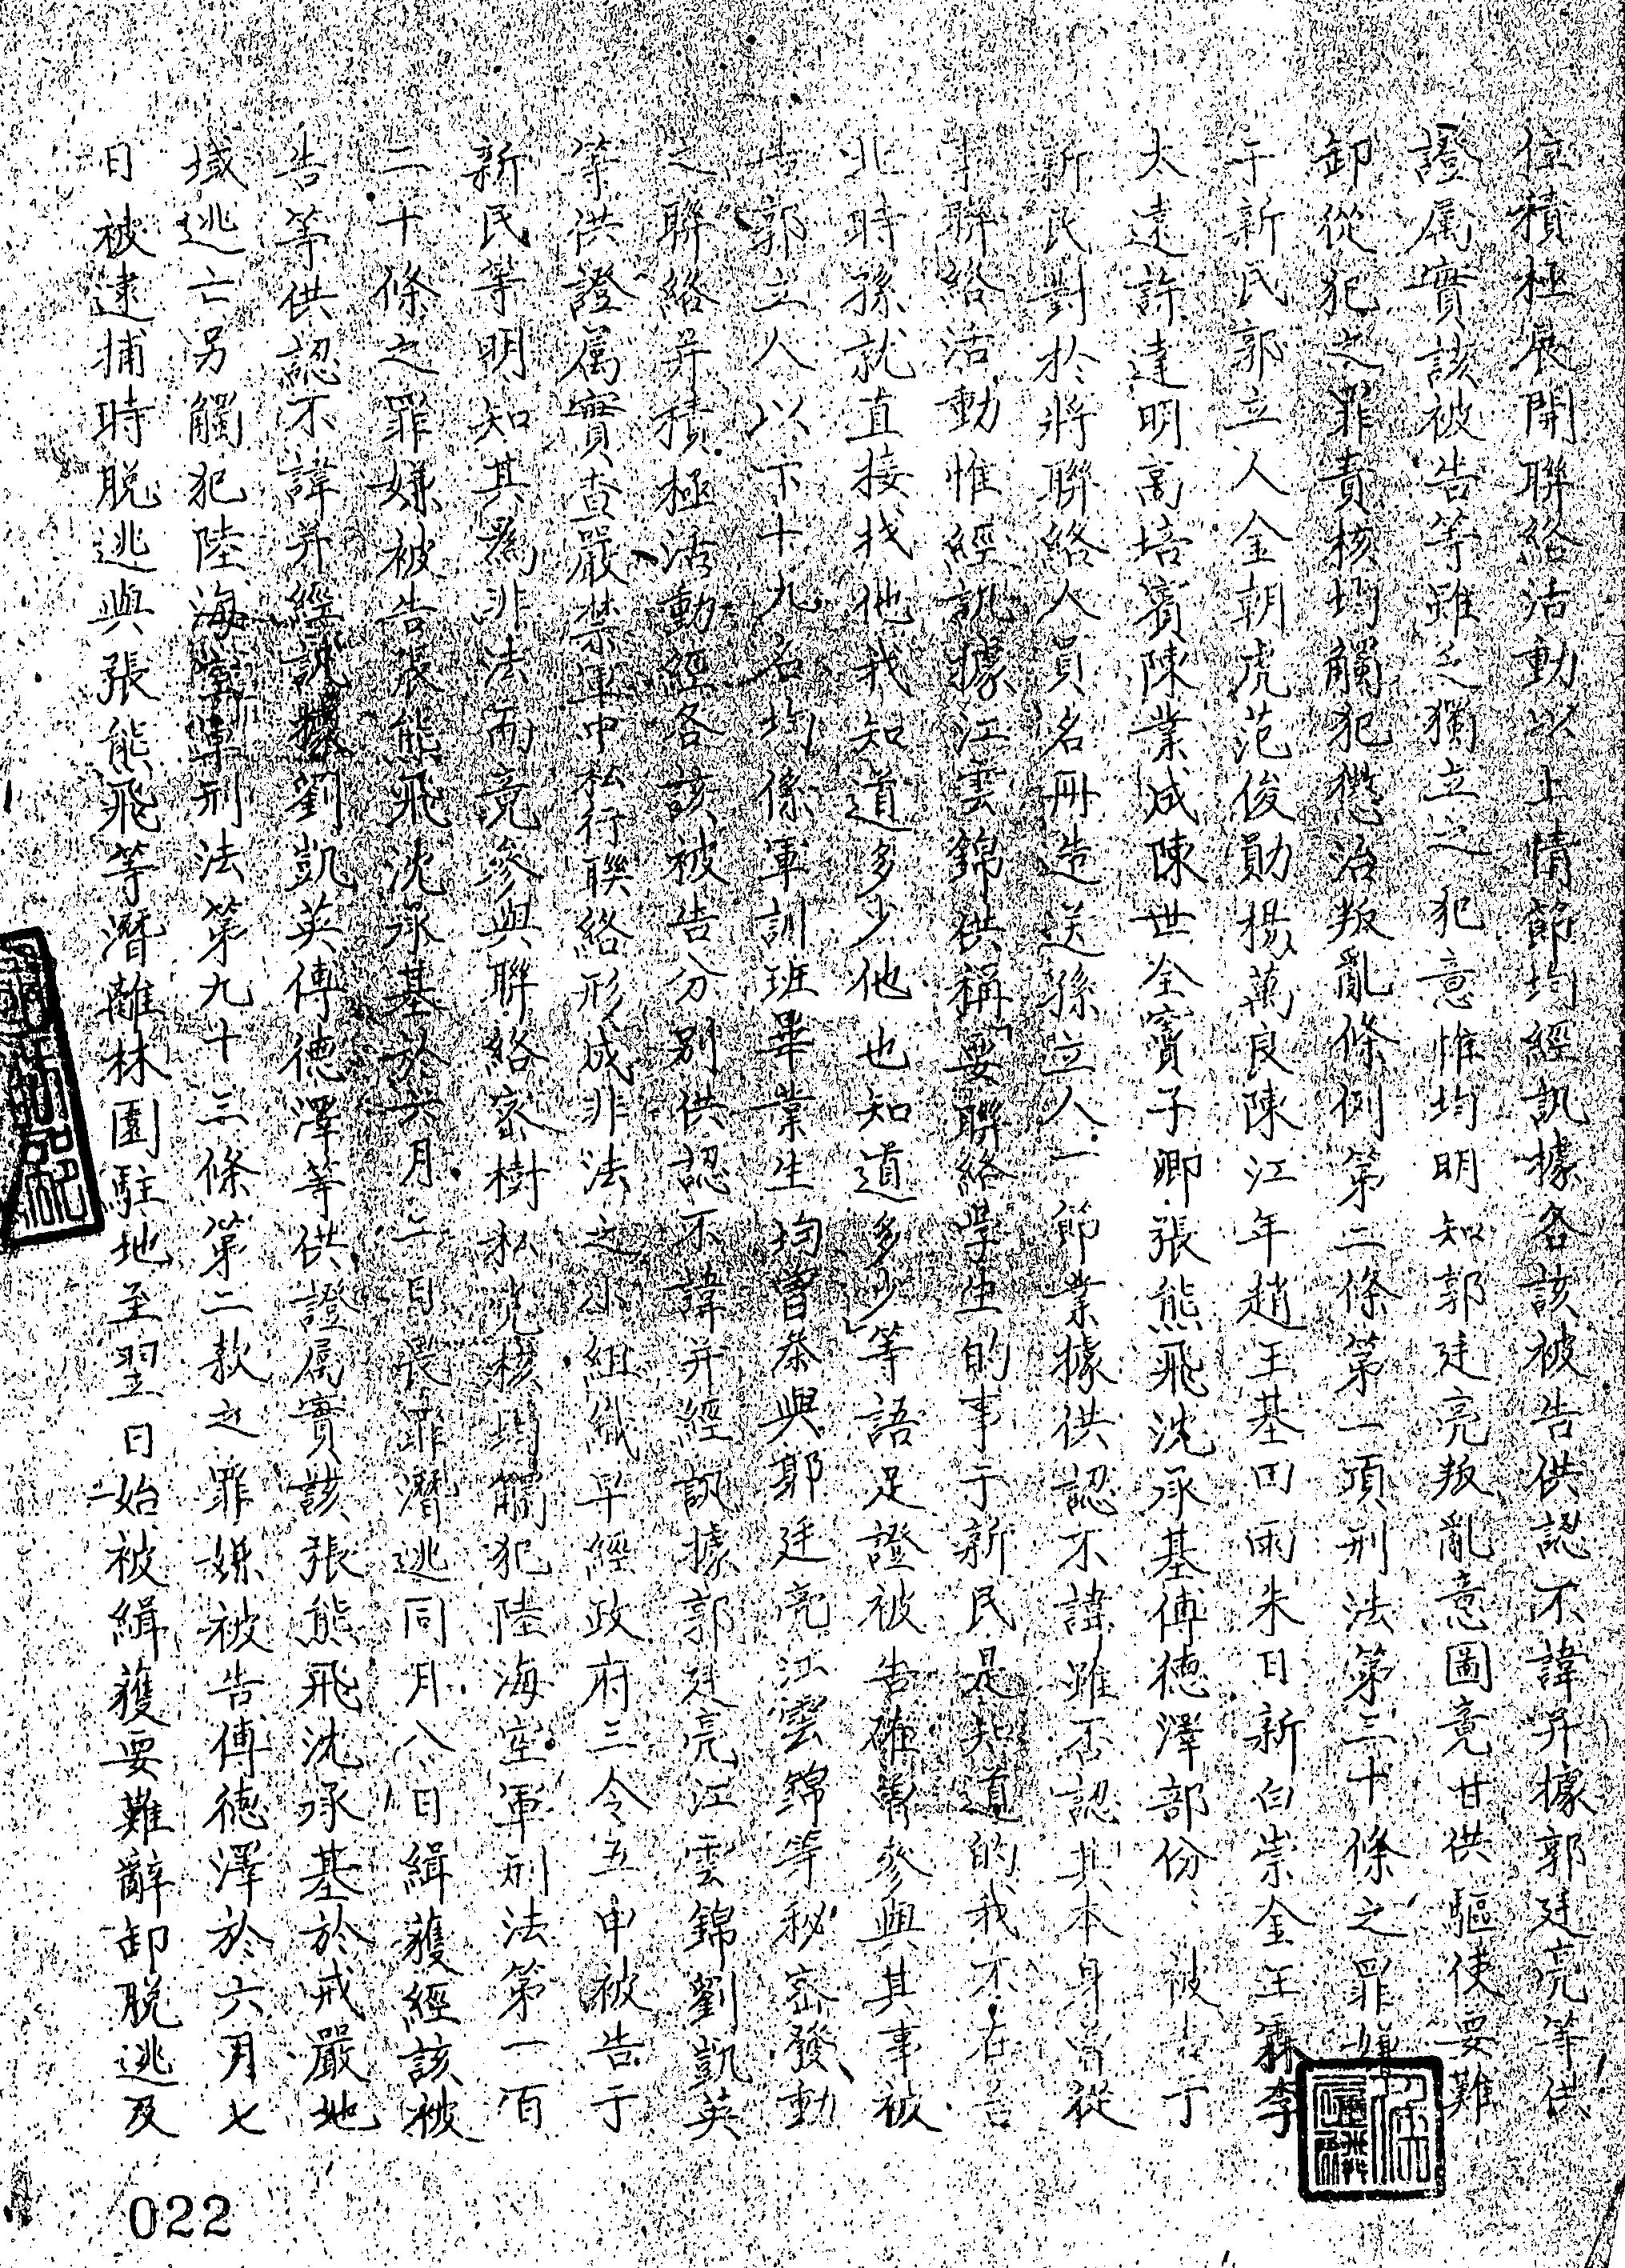 位積極展開聯絡活動以上情節均經訊據各該被告供認不諱并據郭廷亮等供
證属實該被告等雖乏獨立之犯意惟均明知郭廷亮叛亂意圖竟甘供驅使要難
卸從犯之罪責核均觸犯懲治叛亂條例第二條第一項刑法第三十條之罪嫌
于新民郭立人金朝虎范俊勛楊萬良陳江年趙王基田雨朱日新白崇金王霖李
太遠許達明高培賓陳業成陳世全竇子卿張熊飛沈承基傅德澤部份、被告于
新民對於將聯絡人員名冊造送孫立人一節業據供認不諱雖否認其本身曾從
事聯絡活動惟經訊據江雲錦供稱「要聯絡学生的事于新民是知道的我不在台
北時孫就直接找他我知道多少他也知道多少」等語足證被告確曾參與其事被
告郭立人以下十九名均係軍訓班畢業生均曾參與郭廷亮江雲錦等秘密發動
之聯絡并積極活動經各該被告分別供認不諱并經訊據郭廷亮江雲錦劉凱英
等供證属實查嚴禁軍中私行聯絡形成非法之小組織早經政府三令五申被告于
新民等明知其爲非法而竟參與聯絡密樹私党核均觸犯陸海空軍刑法第一百
二十條之罪嫌被告張熊飛沈承基於六月二日畏罪潛逃同月八日緝獲經該被
告等供認不諱并經訊據劉凱英傅德澤等供證属實該張熊飛沈承基於戒嚴地
域逃亡另觸犯陸海空軍刑法第九十三條第二款之罪嫌被告傅德澤於六月七
日被逮捕時脫逃與張熊飛等潛離林園駐地至翌日始被緝獲要難辭卸脫逃及
022